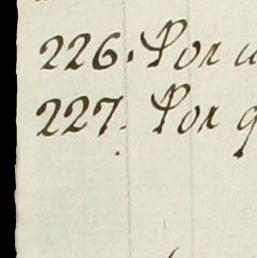 226. Por
227. Por